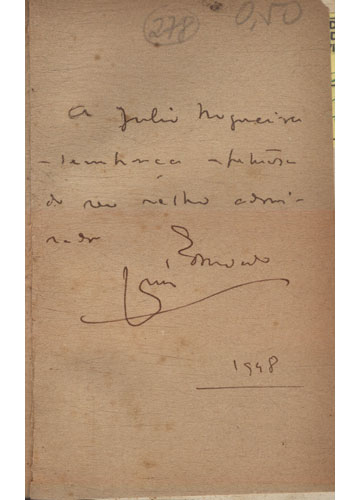 278 0,50
A Julio Nogueira
lembrança afetuosa
do seu velho admi-
rador
Edmundo
Luis
1948